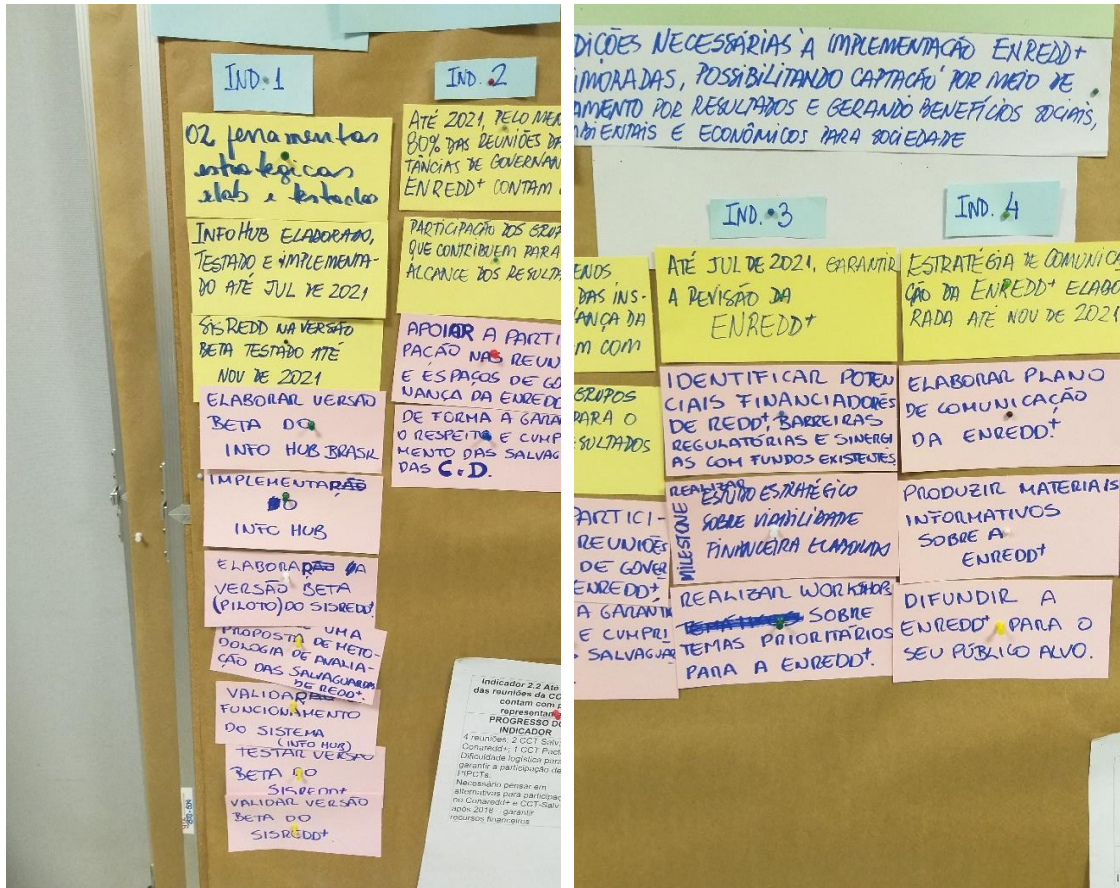 IND. 1
02 ferramentas
estratégicas
elab e testadas
INFOHUB ELABORADO,
TESTADO E IMPLEMENTA-
DO ATÉ JUL DE 2021
SISREDD NA VERSÃO
BETA TESTADO ATÉ
NOV DE 2021
ELABORAR VERSÃO
BETA DO
INFO HUB BRASIL
IMPLEMENTAR
O
INFO HUB
ELABORAR A
VERSÃO BETA
(PILOTO) DO SISREDD+
UMA
PROPOSTA DE METO-
DOLOGIA DE AVALIA-
ÇÃO DAS SALVAGUARDAS
DE REDD+
VALIDAR
FUNCIONAMENTO
DO SISTEMA
(INFO HUB)
TESTAR VERSÃO
BETA DO
SISREDD+
VALIDAR VERSÃO
BETA DO
SISREDD+
IND. 2
ATÉ 2021, PELO MEN
80% DAS REUNIÕES DA
TÂNCIAS DE GOVERNAN
ENREDD+ CONTAM
PARTICIPAÇÃO DOS GRUP
QUE CONTRIBUEM PARA
ALCANCE DOS RESULTA
APOIAR A PARTI
PAÇÃO NAS REUN
E ESPAÇOS DE GO
NANÇA DA ENREDD
DE FORMA A GARA
O RESPEITO E CUMP
MENTO DAS SALVAG
DAS C.D.
Indicador 2.2 Até
das reuniões da CC
contam com p
representan
PROGRESSO DO
INDICADOR
4 reuniões: 2 CCT Salv
Conaredd+; 1 CCT Pact
Dificuldade logística para
garantir a participação de
PIPCTs.
Necessário pensar em
alternativas para participaç
no Conaredd+ e CCT-Salv
após 2018 garantir
recursos financeiros
DIÇÕES NECESSÁRIAS À IMPLEMENTAÇÃO ENREDD+
IMORADAS, POSSIBILITANDO CAPTAÇÃO POR MEIO DE
AMENTO POR RESULTADOS E GERANDO BENEFÍCIOS SOCIAIS,
BIENTAIS E ECONÔMICOS PARA SOCIEDADE
ENOS
DAS INS-
ANÇA DA
M COM
GRUPOS
PARA O
SULTADOS
PARTICI-
REUNIÕES
DE GOVER
ENREDD+
A GARANTI
E CUMPRI
SALVAGUAR
IND. 3
ATÉ JUL DE 2021, GARANTIR
A REVISÃO DA
ENREDD+
IDENTIFICAR POTEN
CIAIS FINANCIADORES
DE REDD+, BARREIRAS
REGULATÓRIAS E SINERGI
AS COM FUNDOS EXISTENTES
MILESTONE
REALIZAR
ESTUDO ESTRATÉGICO
SOBRE VIABILIDADE
FINANCEIRA ELABORADO
REALIZAR WORKSHOPS
SOBRE
TEMAS PRIORITÁRIOS
PARA A ENREDD+.
IND. 4
ESTRATÉGIA DE COMUNICA
ÇÃO DA ENREDD+ ELABO
RADA ATÉ NOV DE 2021
ELABORAR PLANO
DE COMUNICAÇÃO
DA ENREDD+
PRODUZIR MATERIAIS
INFORMATIVOS
SOBRE A
ENREDD+
DIFUNDIR A
ENREDD+ PARA O
SEU PÚBLICO ALVO.